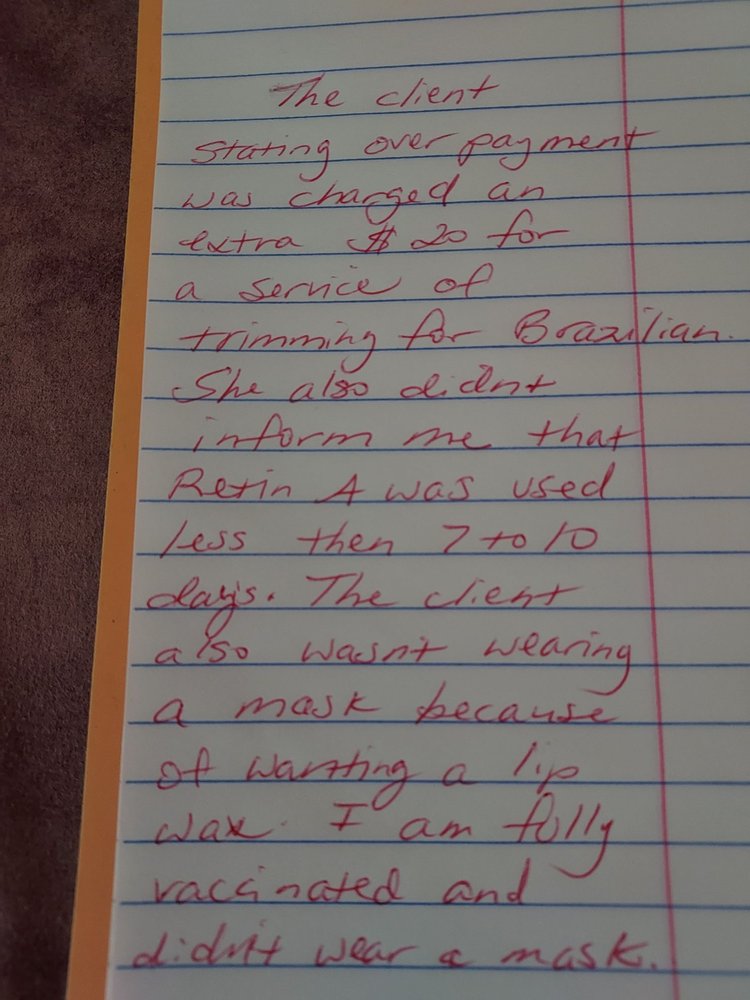 The client
stating over payment
was charged an
extra $20 for
a service of
trimming for Brazilian.
She also didnt
inform me that
Retin A was used
less then 7 to 10
days. The client
also wasnt wearing
a mask because
of wanting a lip
wax. I am fully
vaccinated and
didn't wear a mask.